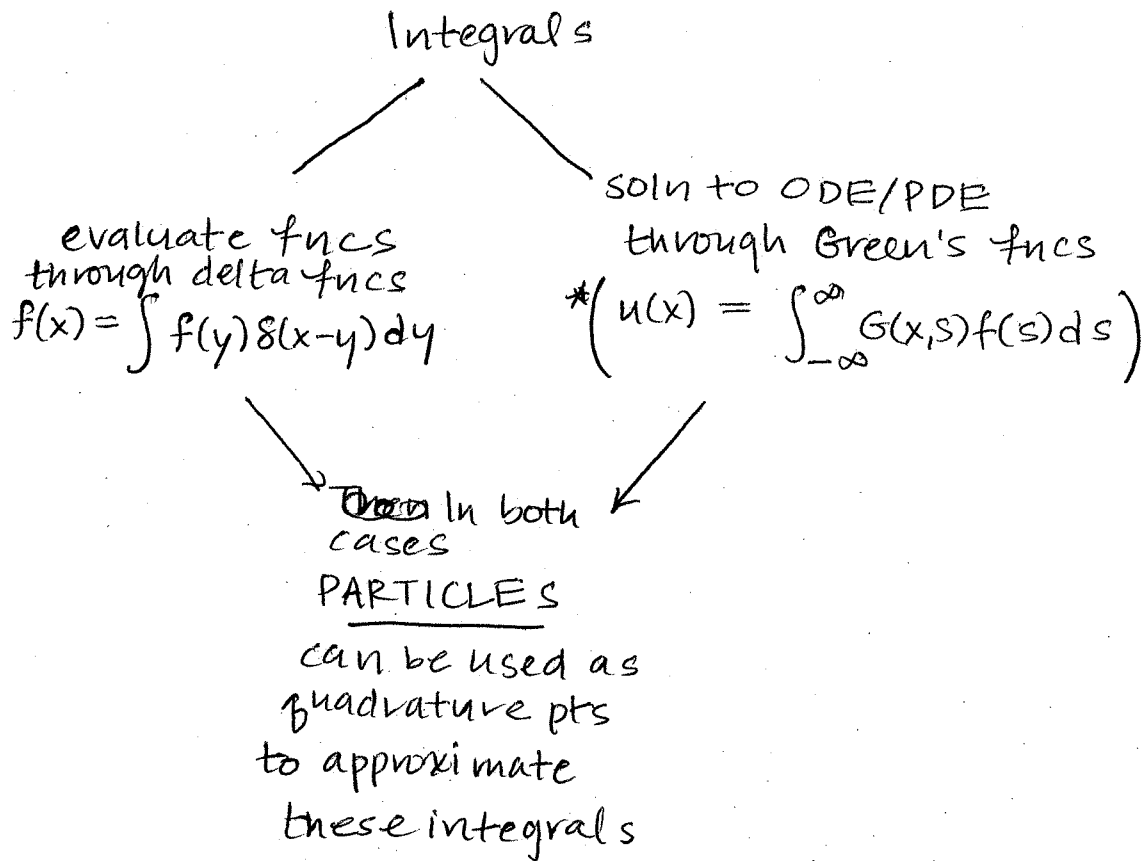 Integrals
evaluate fncs
through delta fncs
f(x) = ∫ f(y) δ(x-y) dy
soln to ODE/PDE
through Green's fncs
*( u(x) = ∫_{-∞}^{∞} G(x,s) f(s) ds )
In both
cases
PARTICLES
can be used as
quadrature pts
to approximate
these integrals